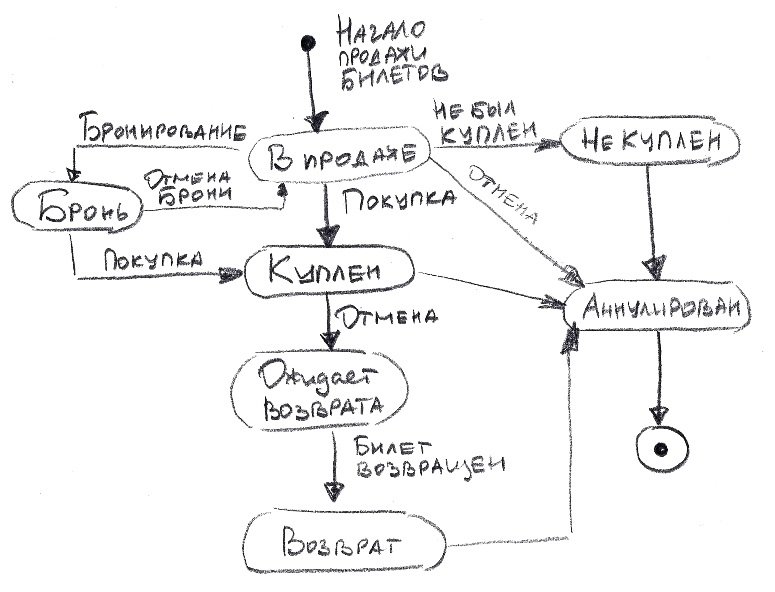 Начало
продажи
билетов
Бронирование
не был
куплен
В продаже
Не куплен
Отмена
брони
Отмена
Бронь
Покупка
Покупка
Куплен
Аннулирован
Отмена
Ожидает
возврата
Билет
возвращен
Возврат